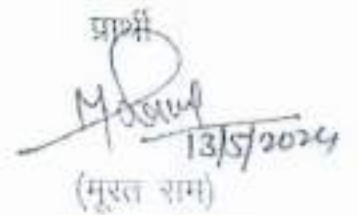 प्रार्थी
13/5/2024
(मूरत राम)